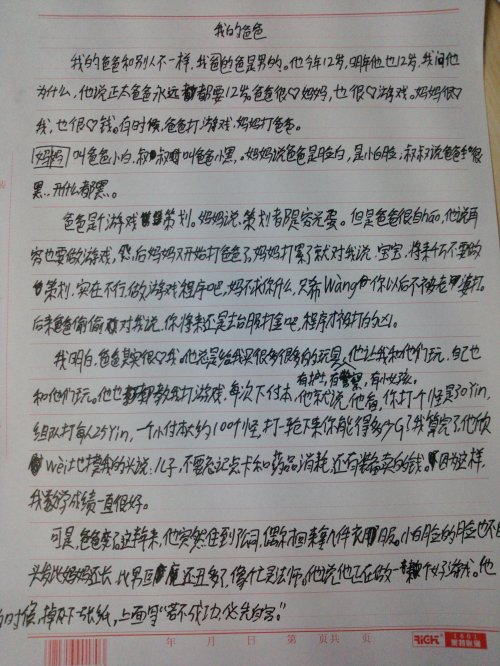 我的爸爸
我的爸爸和别人不一样,我爸的爸是男的。他今年12岁,明年他也12岁,我问他
为什么,他说正太爸爸永远都要12岁。爸爸很♡妈妈,也很♡游戏。妈妈很♡
我,也很♡钱。有时候,爸爸打游戏,妈妈打爸爸。
妈妈叫爸爸小白,叔叔叫爸爸小黑。妈妈说爸爸是脸白,是小白脸,叔叔说爸爸手很
黑,开什么都黑。
爸爸是个游戏策划。妈妈说,策划都是穷光蛋。但是爸爸很自hao,他说再
穷也要做游戏,然后妈妈又开始打爸爸了,妈妈打累了就对我说:宝宝,将来千万不要做
策划,实在不行,做游戏程序吧,妈不求你什么,只希Wàng你以后不被老婆打。
后来爸爸偷偷对我说,你将来还是去台服打金吧,程序才被打的凶。
我明白,爸爸其实很♡我。他总是给我买很多很多的玩具,他让我和他们玩,自己也
有护士,有警察,有小女孩。
和他们玩。他也教我打游戏,每次下付本,他就说,他看,你打个怪是30Yin,
组队打每人25Yin,一个小付本大约100个怪,打一轮下来你能得多少G?我算完了他欣
Wèi地摸我的头说:儿子,不要忘记点卡和药品消耗,还有装备卖的钱。因为这样,
我数学成绩一直很好。
可是,爸爸变了,这半年来,他突然住到了公司,偶尔才回来拿几件衣服。小白脸的脸也不白
头发比妈妈还长,比男巨魔还丑多了,像亡灵法师。他说他正在做一款个好游戏。他
的时候,掉下一张纸,上面写“若不成功,必先自宫。”
年 月 日 第 页共 页
RICH